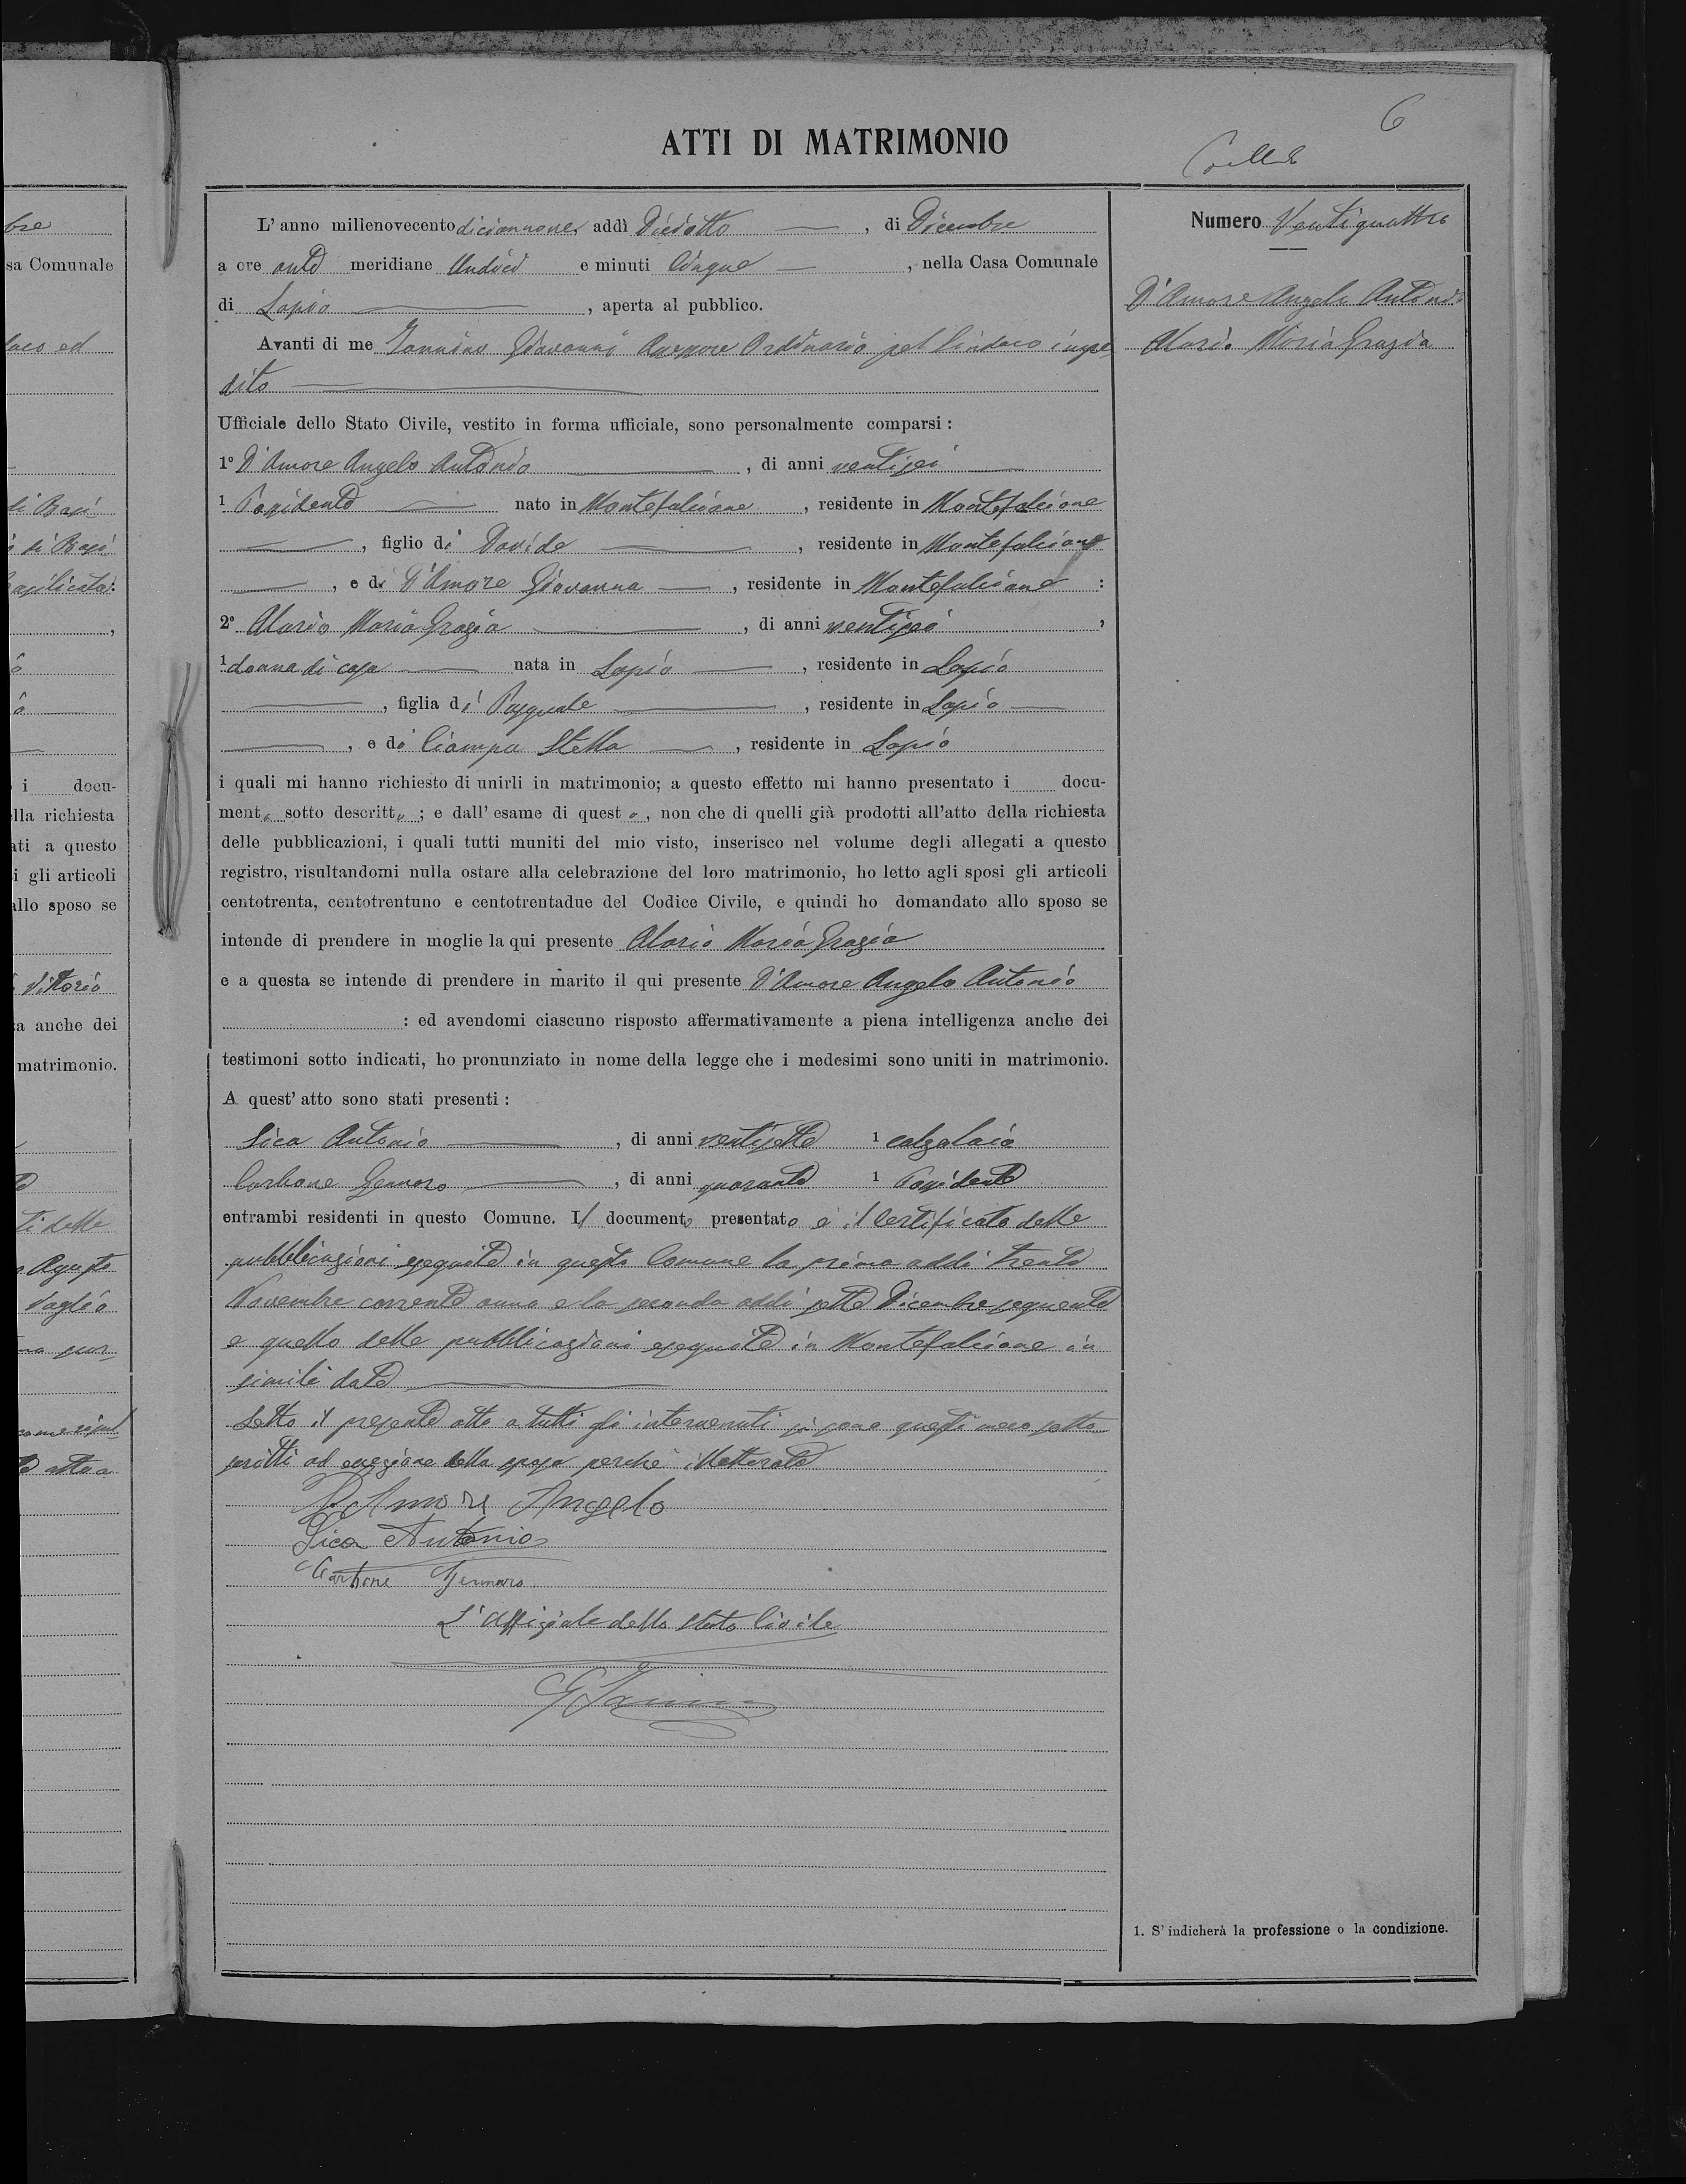 bre
sa Comunale
daco ed
di Basi
di Basi
asilicata:
i docu-
lla richiesta
ati a questo
i gli articoli
allo sposo se
Vittorio
za anche dei
matrimonio.
ti delle
Agosto
Vaglio
atto a
6
ATTI DI MATRIMONIO
L'anno millenovecento diciannove, addì Diciotto, di Dicembre
a ore anti meridiane Undici e minuti Cinque, nella Casa Comunale
di Lapio, aperta al pubblico.
Avanti di me Iannino Giovanni Assessore Ordinario pel Sindaco impe
dito
Ufficiale dello Stato Civile, vestito in forma ufficiale, sono personalmente comparsi:
1° D'Amore Angelo Antonio, di anni ventisei
1 Possidente nato in Montefalcione, residente in Montefalcione
, figlio di Davide, residente in Montefalcione
, e di D'Amore Giovanna, residente in Montefalcione:
2° Maria Grazia, di anni ventisei,
1 donna di casa nata in Lapio, residente in Lapio
, figlia di Pasquale, residente in Lapio
, e di Ciampa Stella, residente in Lapio
i quali mi hanno richiesto di unirli in matrimonio; a questo effetto mi hanno presentato i docu-
ment o sotto descritt o; e dall'esame di quest o, non che di quelli già prodotti all'atto della richiesta
delle pubblicazioni, i quali tutti muniti del mio visto, inserisco nel volume degli allegati a questo
registro, risultandomi nulla ostare alla celebrazione del loro matrimonio, ho letto agli sposi gli articoli
centotrenta, centotrentuno e centotrentadue del Codice Civile, e quindi ho domandato allo sposo se
intende di prendere in moglie la qui presente Maria Grazia
e a questa se intende di prendere in marito il qui presente D'Amore Angelo Antonio
: ed avendomi ciascuno risposto affermativamente a piena intelligenza anche dei
testimoni sotto indicati, ho pronunziato in nome della legge che i medesimi sono uniti in matrimonio.
A quest'atto sono stati presenti:
Sica Antonio, di anni ventisette 1 calzolaio
Carbone Gennaro, di anni quaranta 1 Possidente
entrambi residenti in questo Comune. Il documento presentato è il certificato delle
pubblicazioni eseguite in questo Comune la prima addì trenta
Novembre corrente anno e la seconda addì sette Dicembre seguente
e quello delle pubblicazioni eseguite in Montefalcione in
simili date
Letto il presente atto a tutti gli intervenuti si sono questi meco sotto
scritti ad eccezione della sposa perché illetterata
D'Amore Angelo
Sica Antonio
Carbone Gennaro
L'Uffiziale dello Stato Civile
G Iannino
Numero Ventiquattro
D'Amore Angelo Antonio
Maria Grazia
1. S'indicherà la professione o la condizione.